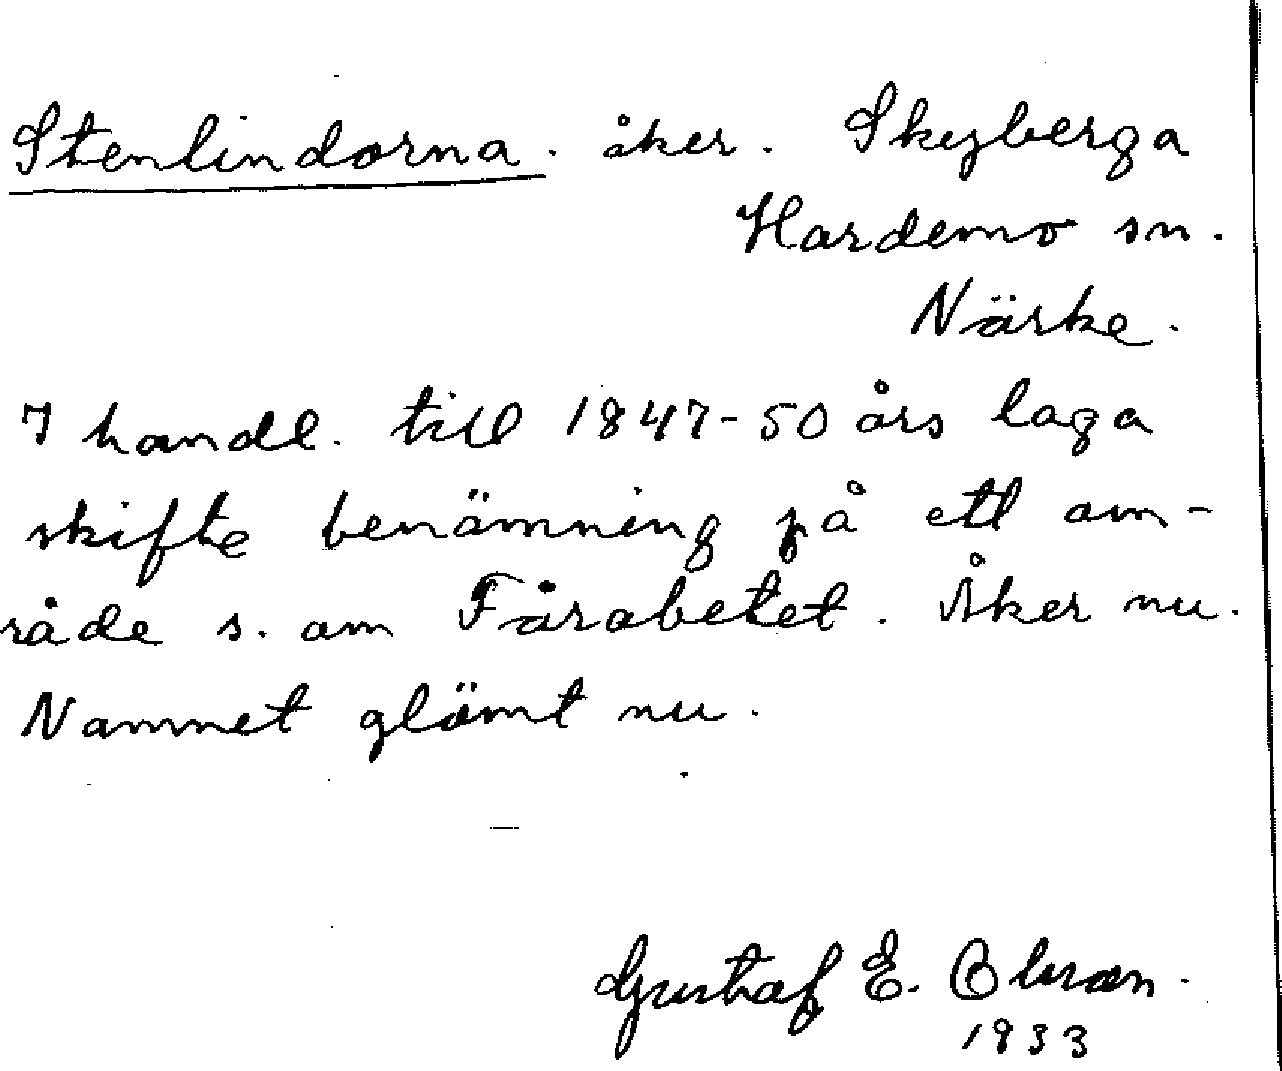 Stenlindorna. åker. Skyberga
Hardemo sn.
Närke.
I handl. till 1847-50 års laga
skifte benämning på ett om-
råde s. om Fårabetet. Åker nu.
Namnet glömt nu.
Gustaf E. Olsson.
1933